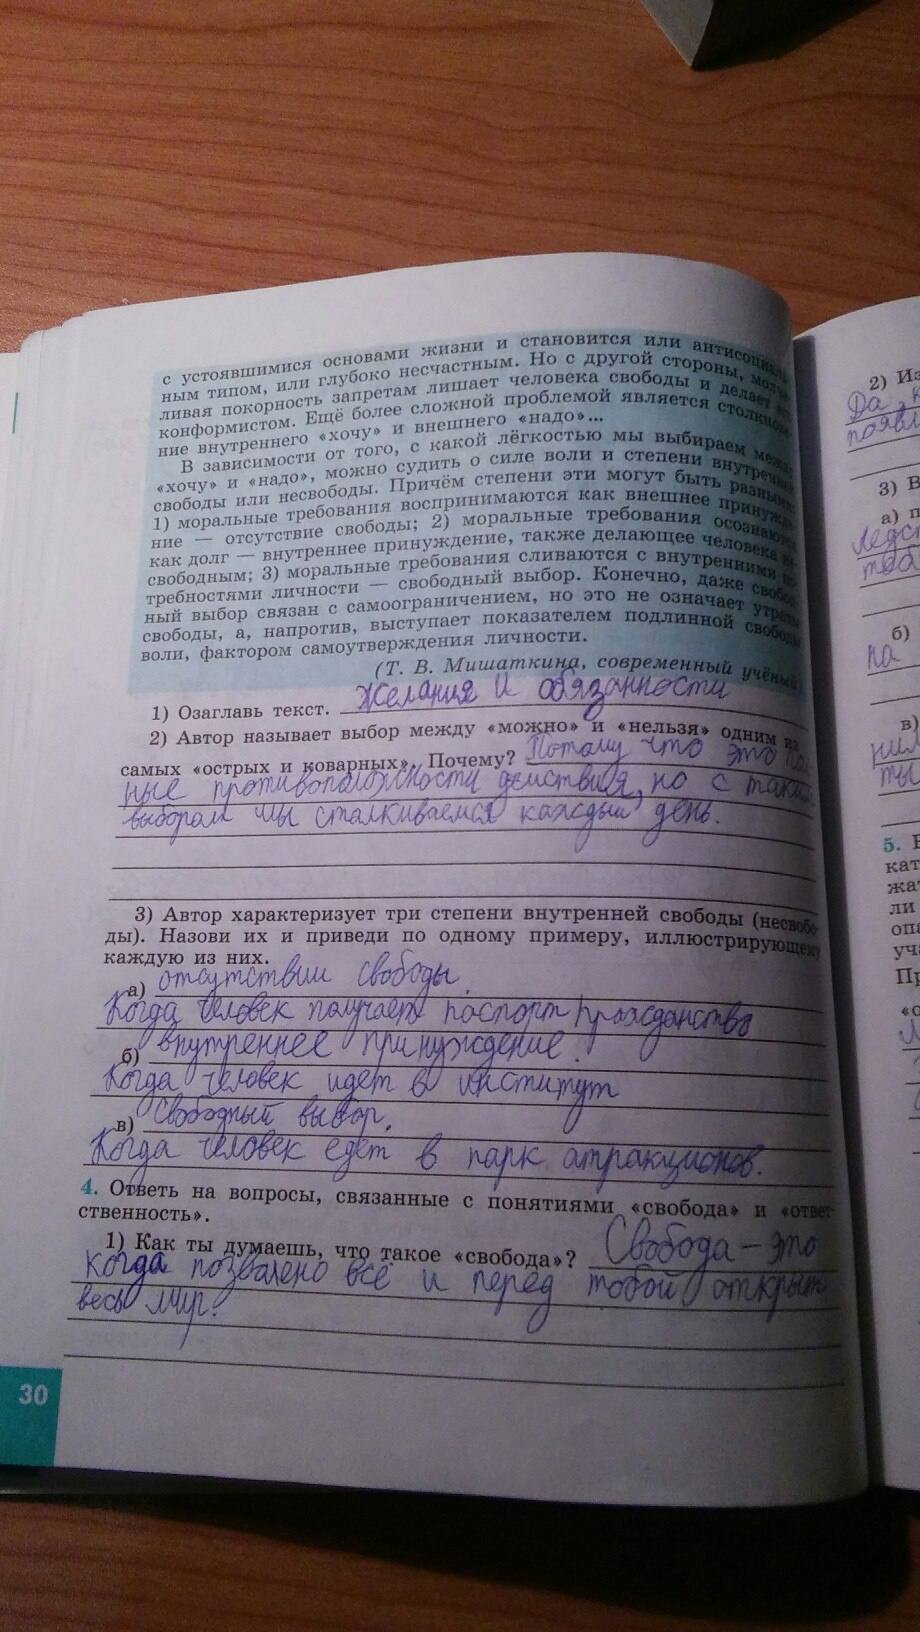 с устоявшимися основами жизни и становится или
ным типом, или глубоко несчастным. Но с другой стороны,
ливая покорность запретам лишает человека свободы и делает его
конформистом. Ещё более сложной проблемой является
ние внутреннего «хочу» и внешнего «надо»...
В зависимости от того, с какой лёгкостью мы выбираем между
«хочу» и «надо», можно судить о силе воли и степени внутренней
свободы или несвободы. Причём степени эти могут быть разными:
1) моральные требования воспринимаются как внешнее принужде-
ние — отсутствие свободы; 2) моральные требования осознаются
как долг — внутреннее принуждение, также делающее человека не-
свободным; 3) моральные требования сливаются с внутренними по-
требностями личности — свободный выбор. Конечно, даже свобод-
ный выбор связан с самоограничением, но это не означает утраты
свободы, а, напротив, выступает показателем подлинной свободы
воли, фактором самоутверждения личности.
(Т. В. Мишаткина, современный учёный)
1) Озаглавь текст. Желания и обязанности
2) Автор называет выбор между «можно» и «нельзя» одним из
самых «острых и коварных». Почему? Потому что это пол-
ные противоположности действия, но с таким
выбором мы сталкиваемся каждый день.
3) Автор характеризует три степени внутренней свободы (несвобо-
ды). Назови их и приведи по одному примеру, иллюстрирующему
каждую из них.
а) отсутствии свободы.
Когда человек получает паспорт/гражданство
б) внутреннее принуждение.
Когда человек идет в институт
в) Свободный выбор.
Когда человек едет в парк атракционов.
4. Ответь на вопросы, связанные с понятиями «свобода» и «ответ-
ственность».
1) Как ты думаешь, что такое «свобода»? Свобода – это
когда позволено всё и перед тобой открыт
весь мир.
30
2) Из
Да, к
появл
3) В
а) п
б)
на
в)
ты
5. В
кат
жат
ли
опа
уча
Пр
«о